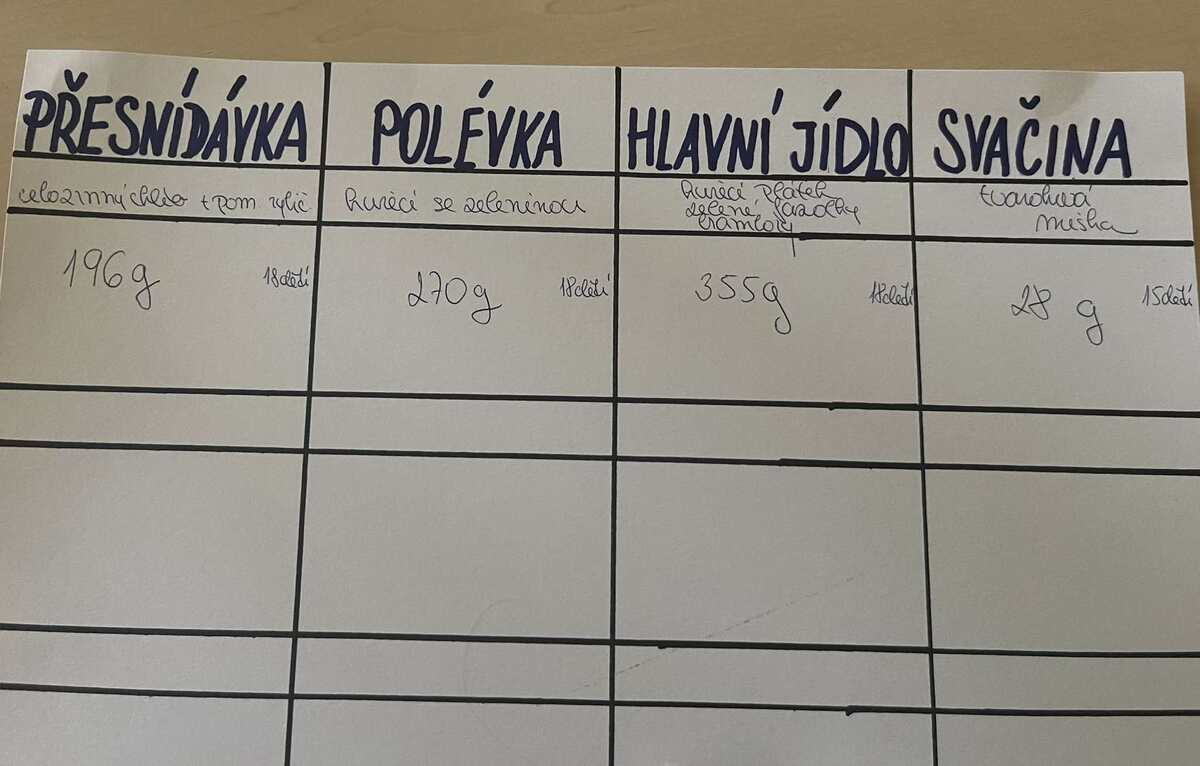 PŘESNÍDÁVKA POLÉVKA HLAVNÍ JÍDLO SVAČINA
celozrnný chléb + pom rybič
kuřecí se zeleninou
kuřecí plátek
zelené fazolky
brambory
tvarohová
miska
196g 18 dětí
270g 18 dětí
355g 18 dětí
28 g 15 dětí